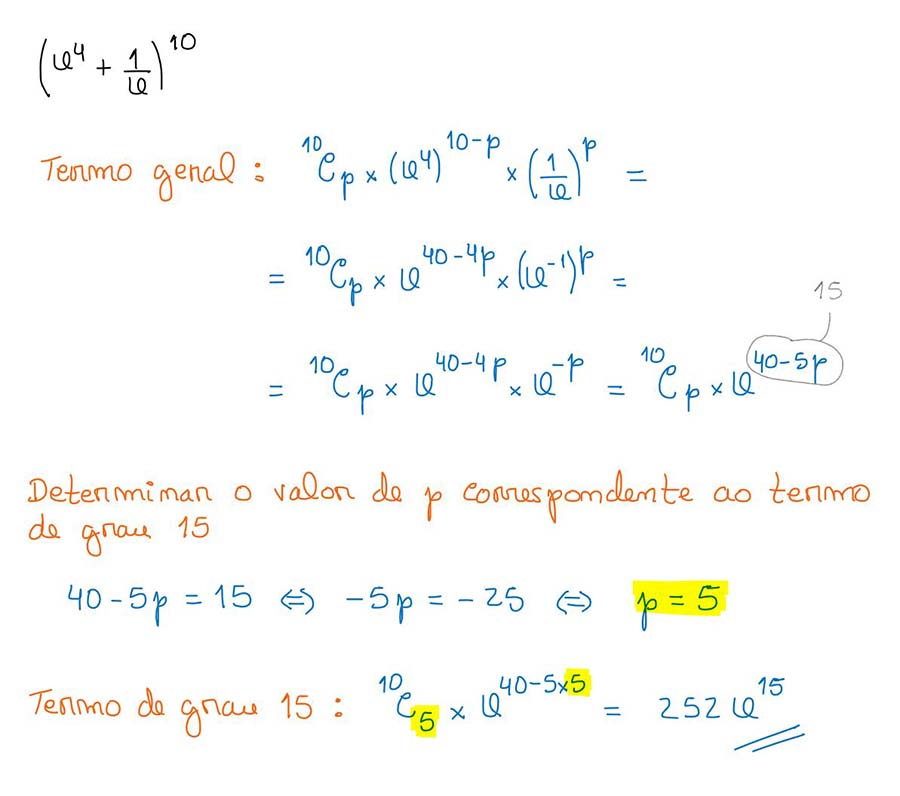 (x⁴ + 1/x)¹⁰
Termo geral : ¹⁰Cₚ × (x⁴)¹⁰⁻ᵖ × (1/x)ᵖ =
= ¹⁰Cₚ × x⁴⁰⁻⁴ᵖ × (x⁻¹)ᵖ =
15
= ¹⁰Cₚ × x⁴⁰⁻⁴ᵖ × x⁻ᵖ = ¹⁰Cₚ × x⁴⁰⁻⁵ᵖ
Determinar o valor de p correspondente ao termo
de grau 15
40 - 5p = 15 ⇔ -5p = -25 ⇔ p = 5
Termo de grau 15 : ¹⁰C₅ × x⁴⁰⁻⁵ˣ⁵ = 252 x¹⁵